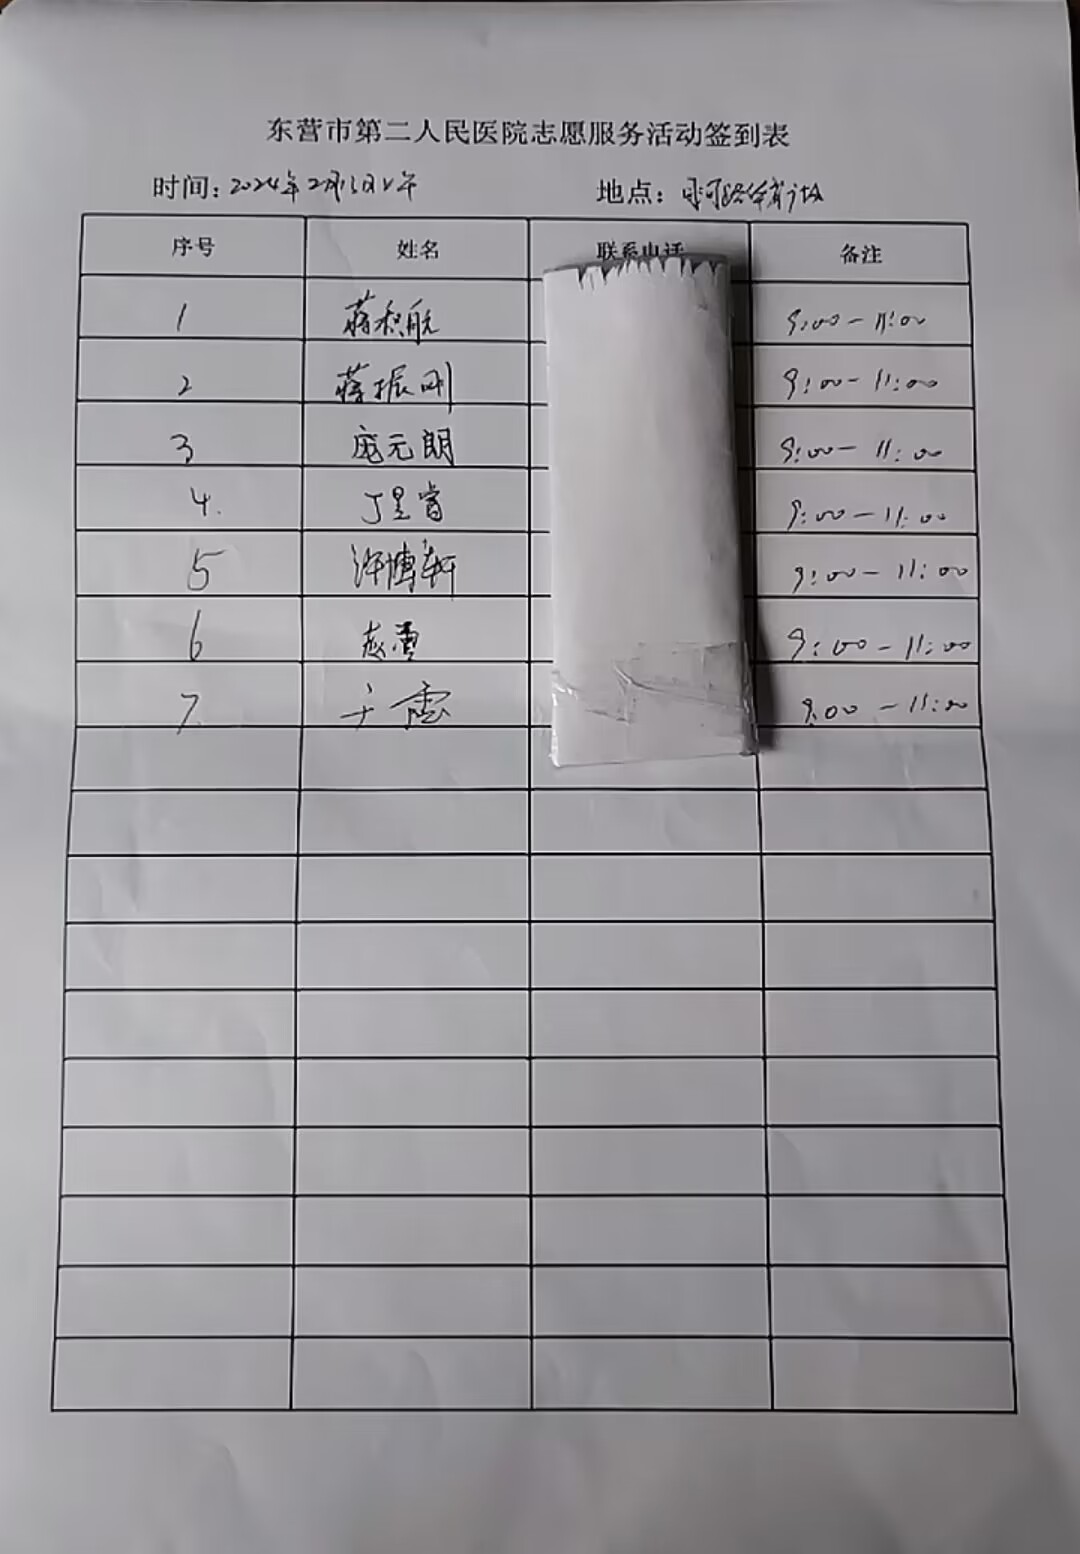 东营市第二人民医院志愿服务活动签到表
时间：2024年2月 地点：
序号 姓名 联系电话 备注
1 蒋积航 9:00-11:00
2 蒋振刚 9:00-11:00
3 庞元朗 9:00-11:00
4. 丁昱睿 9:00-11:00
5 许博轩 9:00-11:00
6 9:00-11:00
7 9:00-11:00